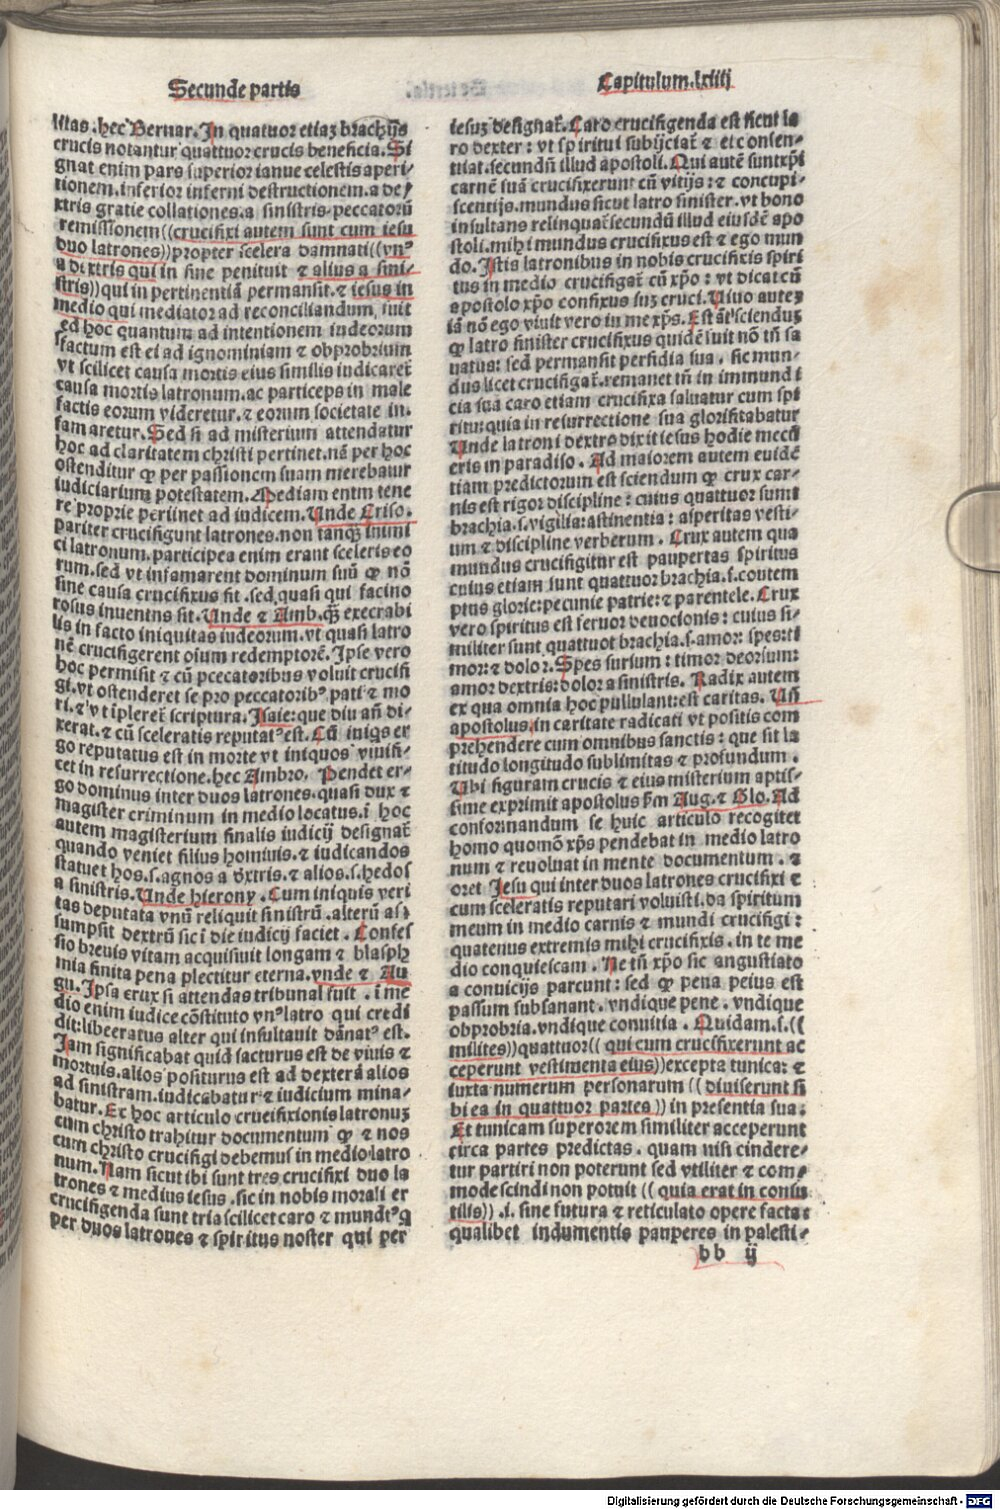 Secunde partis
Capitulum.lxiiij
litas.hec Bernar.In quatuor etiaȝ brachijs
crucis notantur quattuor crucis beneficia.Si
gnat enim pars superior ianue celestis aperi-
tionem.inferior inferni destructionem.a de/
xtris gratie collationes.a sinistris peccatorū
remissionem((crucifixi autem sunt cum iesu
duo latrones))propter scelera damnati((vnꝰ
a dextris qui in fine penituit ⁊ alius a sini/
stris))qui in pertinentiā permansit.⁊ iesus in
medio qui mediator ad reconciliandum, fuit
ed hoc quantum ad intentionem iudeorum
factum est ei ad ignominiam ⁊ obprobrium
vt scilicet causa mortis eius similis iudicaret̄
causa mortis latronum.ac particeps in male
factis eorum videretur.⁊ eorum societate in.
famaretur.Sed si ad misterium attendatur
hoc ad claritatem christi pertinet.nā per hoc
ostenditur ꝙ per passionem suam merebatur
iudiciarium potestatem.Mediam enim tene
re proprie pertinet ad iudicem.Unde Criso.
pariter crucifigunt latrones.non tanqȝ inimi
ci latronum.participea enim erant sceleris eo
rum.sed vt infamarent dominum suū ꝙ nō
sine causa crucifixus sit.sed quasi qui facino
rosus inuentns sit.Unde ⁊ Amb.qȝ execrabi
lis in facto iniquitas iudeorum.vt quasi latro
nē crucifigerent oīum redemptorē.Ipse vero
hoc permisit ⁊ cū pcecatoribus voluit crucifi
gi.vt ostenderet se pro peccatoribꝰ pati ⁊ mo
ri.⁊ vt īpleret̄ scriptura.Isaie:que diu añ di-
xerat.⁊ cū sceleratis reputatꝰ est.Cū iniqs er
go reputatus est in morte vt iniquos viuifi/
cet in resurrectione.hec Ambro. Pendet er-
go dominus inter duos latrones.quasi dux ⁊
magister criminum in medio locatus.ī hoc
autem magisterium finalis iudicij designat̄
quando veniet filius hominis.⁊ iudicandos
statuet hos.s.agnos a dextris.⁊ alios.s.hedos
a sinistris.Unde hierony.Cum iniquis veri
tas deputata vnū reliquit sinistrū.alterū as/
sumpsit dextrū sic ī die iudicij faciet.Confes
sio breuis vitam acquisiuit longam ⁊ blasph
mia finita pena plectitur eterna.vnde ⁊ Au
gu.Ipsa crux si attendas tribunal fuit.ī me
dio enim iudice cōstituto vnꝰ latro qui credi
dit:libeeratus alter qui insultauit dānatꝰ est.
Iam significabat quid facturus est de viuis ⁊
mortuis.alios positurus est ad dexterā alios
ad sinistram.iudicabatur ⁊ iudicium mina-
batur.Ex hoc articulo crucifixionis latronuȝ
cum christo trahitur documentum ꝙ ⁊ nos
cum christo crucifigi debemus in medio latro
num.Nam sicut ibi sunt tres crucifixi duo la
trones ⁊ medius iesus.sic in nobis morali er
crucifigenda sunt tria scilicet caro ⁊ mundꝰ q̄
per duos latrones ⁊ spiritus noster qui per
iesuȝ designat̄.Caro crucifigenda est sicut la
tro dexter: vt spiritui subijciat̄ ⁊ ei consen-
tiat.secundū illud apostoli.Qui autē sunt xp̄i
carnē suā crucifixerunt cū vitijs:⁊ concupi-
scentijs.mundus sicut latro sinister.vt bono
insultans relinquat̄ secundū illud eiusdē apo
stoli.mihi mundus crucifixus est ⁊ ego mun
do.Istis latronibus in nobis crucifixis spiri
tus in medio crucifigat̄ cū xp̄o: vt dicat cū
apostolo xp̄o confixus suȝ cruci.Viuo auteȝ
iā nō ego viuit vero in me xp̄s.Est āt scienduȝ
ꝙ latro sinister crucifixus quidē fuit nō tñ sa
uatus: sed permansit perfidia sua. sic mun-
dus licet crucifigat̄.remanet tñ in immundi
cia sua caro etiam crucifixa saluatur cum spi
ritu:quia in resurrectione sua glorificabatur
Unde latroni dextro dixit iesus hodie mecū
eris in paradiso. Ad maiorem autem euidē
tiam predictorum est sciendum ꝙ crux car-
nis est rigor discipline: cuius quattuor sunt
brachia.s.vigilia:astinentia: asperitas vesti-
um ⁊ discipline verberum. Crux autem qua
mundus crucifigitur est paupertas spiritus
cuius etiam sunt quattuor brachia.s.contem
ptus glorie:pecunie patrie:⁊ parentele.Crux
vero spiritus est feruor deuocionis: cuius si-
militer sunt quattuot brachia.s.amor: spes:ti
mor:⁊ dolor.Spes sursum: timor deorsum:
amor dextris:dolor a sinistris. Radix autem
ex qua omnia hoc pullulant:est caritas. Uñ
apostolus.in caritate radicati vt possitis com
prehendere cum omnibus sanctis: que sit la
titudo longitudo sublimitas ⁊ profundum.
Ubi figuram crucis ⁊ eius misterium aptis/
sime exprimit apostolus s̄m Aug.⁊ Glo.Ad
conformandum se huic articulo recogitet
homo quomō xp̄s pendebat in medio latro
num ⁊ reuoluat in mente documentum. ⁊
oret Iesu qui inter duos latrones crucifixi ⁊
cum sceleratis reputari voluisti.da spiritum
meum in medio carnis ⁊ mundi crucifigi:
quatenus extremis mihi crucifixis.in te me
dio conquiescam. Ne tñ xp̄o sic angustiato
a conuicijs parcunt: sed ꝙ pena peius est
passum subsanant.vndique pene. vndique
obprobria.vndique conuitia. Quidam.s.((
milites))quattuor((qui cum crucifixerunt ac
ceperunt vestimenta eius))excepta tunica: ⁊
iuxta numerum personarum ((diuiserunt si
bi ea in quattuor partes))in presentia sua.
Et tunicam superorem similiter acceperunt
circa partes predictas. quam nisi cindere-
tur partiri non poterunt sed vtiliter ⁊ com/
mode scindi non potuit((quia erat in consu
tilis)).i. sine futura ⁊ reticulato opere facta:
qualibet indumentis pauperes in palesti/
bb ij
Digitalisierung gefördert durch die Deutsche Forschungsgemeinschaft - DFG